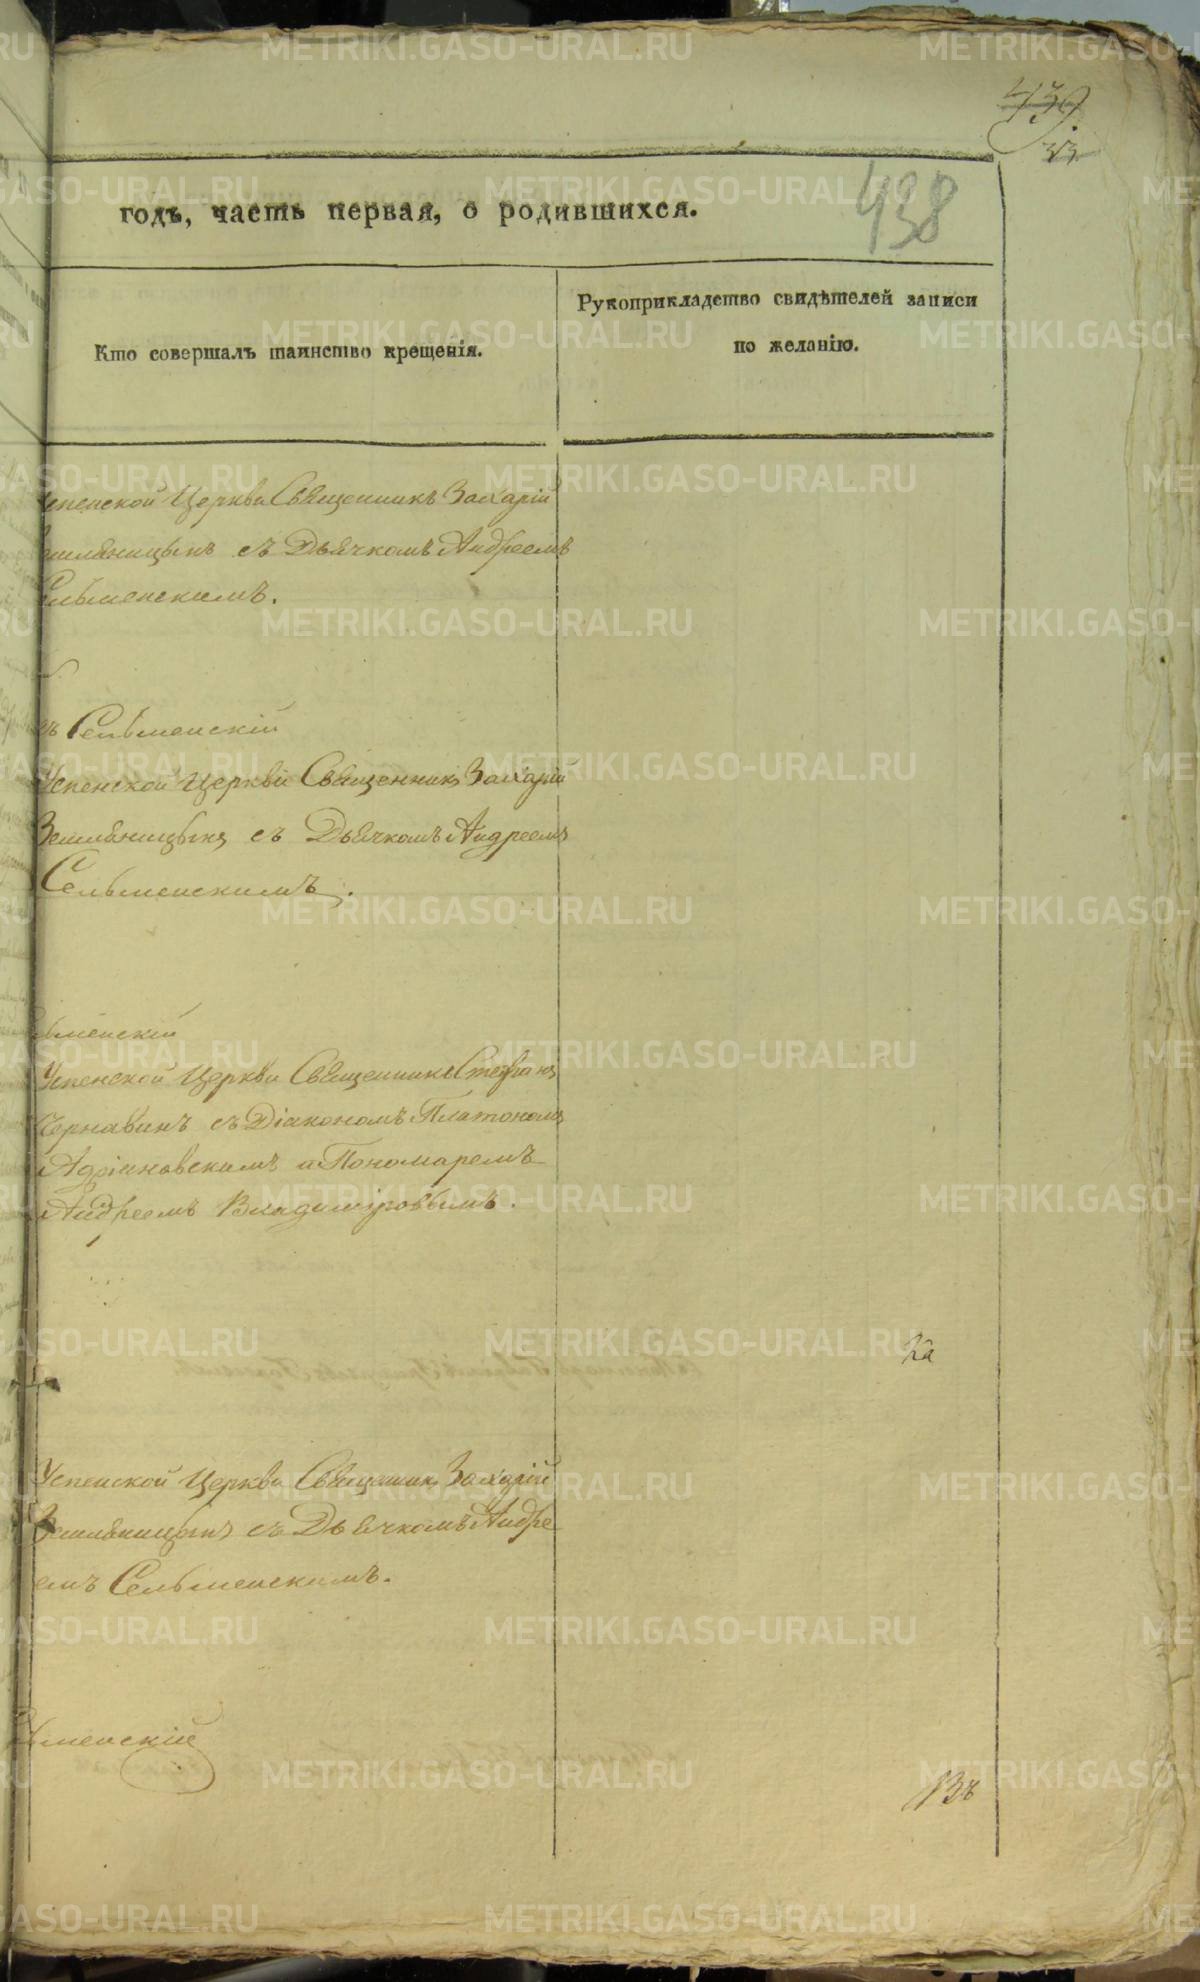 439
33
438
годъ, часть первая, о родившихся.
Кто совершалъ таинство крещенія.
Рукоприкладство свидѣтелей записи
по желанію.
Успенской Церкви Священникъ Захарій
Земляницынъ съ Дьячкомъ Андреемъ
Сельменскимъ.
Сельменскій
Успенской Церкви Священникъ Захарій
Земляницынъ съ Дьячкомъ Андреемъ
Сельменскимъ.
льменскій
Успенской Церкви Священникъ Стефанъ
Чернавинъ съ Діакономъ Платономъ
Адріановскимъ и Пономаремъ
Андреемъ Владиміровымъ.
Успенской Церкви Священникъ Захарій
Земляницынъ съ Дьячкомъ Андре
емъ Сельменскимъ.
льменскій
METRIKI.GASO-URAL.RU